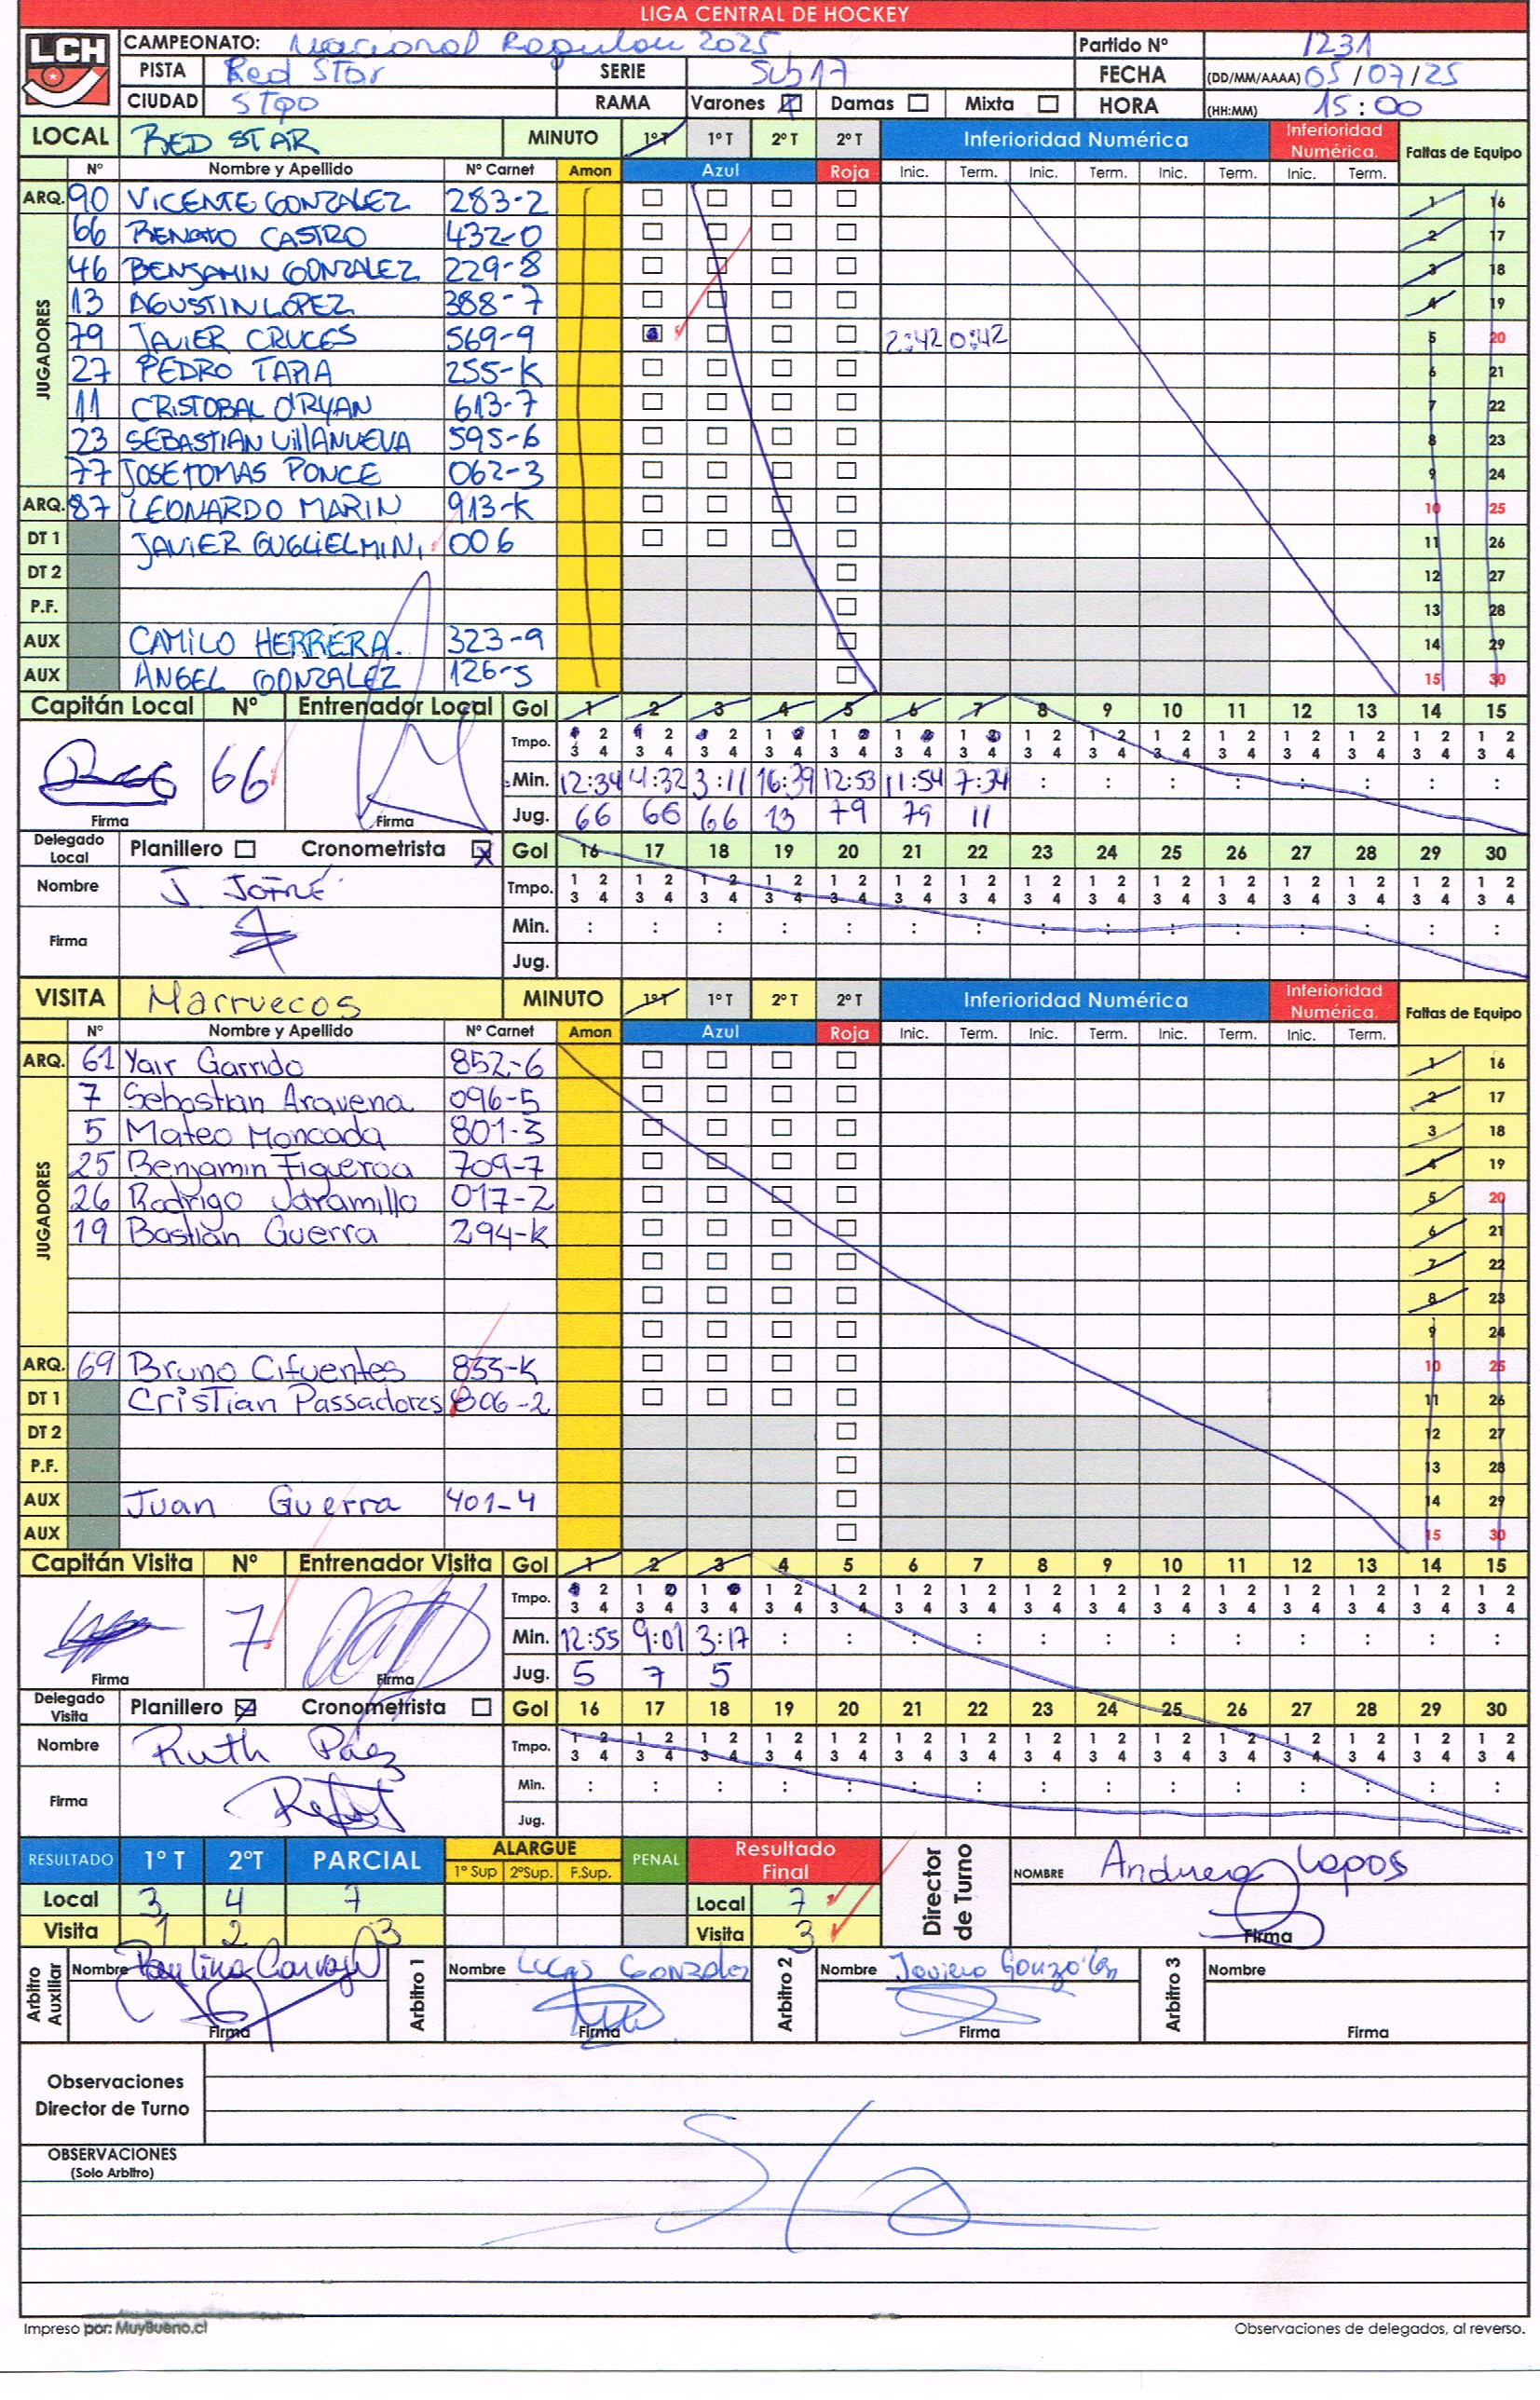 LIGA CENTRAL DE HOCKEY
LCH
CAMPEONATO: Nacional Regular 2025 Partido Nº 1231
PISTA Red Star SERIE Sub17 FECHA (DD/MM/AAAA) 05/07/25
CIUDAD STgo RAMA Varones Damas Mixta HORA (HH:MM) 15:00
LOCAL RED STAR MINUTO 1º T 1º T 2º T 2º T Inferioridad Numérica Inferioridad Numérica. Faltas de Equipo
Nº Nombre y Apellido Nº Carnet Amon Azul Roja Inic. Term. Inic. Term. Inic. Term. Inic. Term.
ARQ. 90 VICENTE GONZALEZ 283-2 1 16
JUGADORES
66 RENATO CASTRO 432-0 2 17
46 BENJAMIN GONZALEZ 229-8 3 18
13 AGUSTIN LOPEZ 388-7 4 19
79 JAVIER CRUCES 569-9 2:42 0:42 5 20
27 PEDRO TAPIA 255-K 6 21
11 CRISTOBAL O'RYAN 613-7 7 22
23 SEBASTIAN VIllANUEVA 595-6 8 23
77 JOSE TOMAS PONCE 062-3 9 24
ARQ. 87 LEONARDO MARIN 913-K 10 25
DT 1 JAVIER GUGLIELMINI 006 11 26
DT 2 12 27
P.F. 13 28
AUX CAMILO HERRERA. 323-9 14 29
AUX ANGEL GONZALEZ 126-5 15 30
Capitán Local Nº Entrenador Local Gol 1 2 3 4 5 6 7 8 9 10 11 12 13 14 15
Tmpo. 1 2 3 4 1 2 3 4 1 2 3 4 1 2 3 4 1 2 3 4 1 2 3 4 1 2 3 4 1 2 3 4 1 2 3 4 1 2 3 4 1 2 3 4 1 2 3 4 1 2 3 4 1 2 3 4 1 2 3 4
66 Min. 12:34 4:32 3:11 16:39 12:53 11:54 7:34 : : : : : : : :
Firma Firma Jug. 66 66 66 13 79 79 11
Delegado Local Planillero Cronometrista Gol 16 17 18 19 20 21 22 23 24 25 26 27 28 29 30
Nombre J. JOFRÉ Tmpo. 1 2 3 4 1 2 3 4 1 2 3 4 1 2 3 4 1 2 3 4 1 2 3 4 1 2 3 4 1 2 3 4 1 2 3 4 1 2 3 4 1 2 3 4 1 2 3 4 1 2 3 4 1 2 3 4 1 2 3 4
Firma Min. : : : : : : : : : : : : : : :
Jug.
VISITA Marruecos MINUTO 1º T 1º T 2º T 2º T Inferioridad Numérica Inferioridad Numérica. Faltas de Equipo
Nº Nombre y Apellido Nº Carnet Amon Azul Roja Inic. Term. Inic. Term. Inic. Term. Inic. Term.
ARQ. 61 Yair Garrido 852-6 1 16
JUGADORES
7 Sebastian Aravena 096-5 2 17
5 Mateo Moncada 801-3 3 18
25 Benjamin Figueroa 709-7 4 19
26 Rodrigo Jaramillo 017-2 5 20
19 Bastian Guerra 294-K 6 21
7 22
8 23
9 24
ARQ. 69 Bruno Cifuentes 833-K 10 25
DT 1 Cristian Passadores 806-2 11 26
DT 2 12 27
P.F. 13 28
AUX Juan Guerra 401-4 14 29
AUX 15 30
Capitán Visita Nº Entrenador Visita Gol 1 2 3 4 5 6 7 8 9 10 11 12 13 14 15
Tmpo. 1 2 3 4 1 2 3 4 1 2 3 4 1 2 3 4 1 2 3 4 1 2 3 4 1 2 3 4 1 2 3 4 1 2 3 4 1 2 3 4 1 2 3 4 1 2 3 4 1 2 3 4 1 2 3 4 1 2 3 4
7 Min. 12:55 9:01 3:17 : : : : : : : : : : : :
Firma Firma Jug. 5 7 5
Delegado Visita Planillero Cronometrista Gol 16 17 18 19 20 21 22 23 24 25 26 27 28 29 30
Nombre Ruth Páez Tmpo. 1 2 3 4 1 2 3 4 1 2 3 4 1 2 3 4 1 2 3 4 1 2 3 4 1 2 3 4 1 2 3 4 1 2 3 4 1 2 3 4 1 2 3 4 1 2 3 4 1 2 3 4 1 2 3 4 1 2 3 4
Firma Min. : : : : : : : : : : : : : : :
Jug.
RESULTADO 1º T 2ºT PARCIAL ALARGUE 1º Sup 2ºSup. F.Sup. PENAL Resultado Final Director de Turno NOMBRE
Local 3 4 7 Local 7
Visita 1 2 3 Visita 3 Firma
Arbitro Auxiliar Nombre Paulina Carvajal Arbitro 1 Nombre Lucas Gonzalez Arbitro 2 Nombre Javiera González Arbitro 3 Nombre
Firma Firma Firma Firma
Observaciones
Director de Turno
OBSERVACIONES
(Solo Arbitro)
Impreso por: MuyBueno.cl Observaciones de delegados, al reverso.